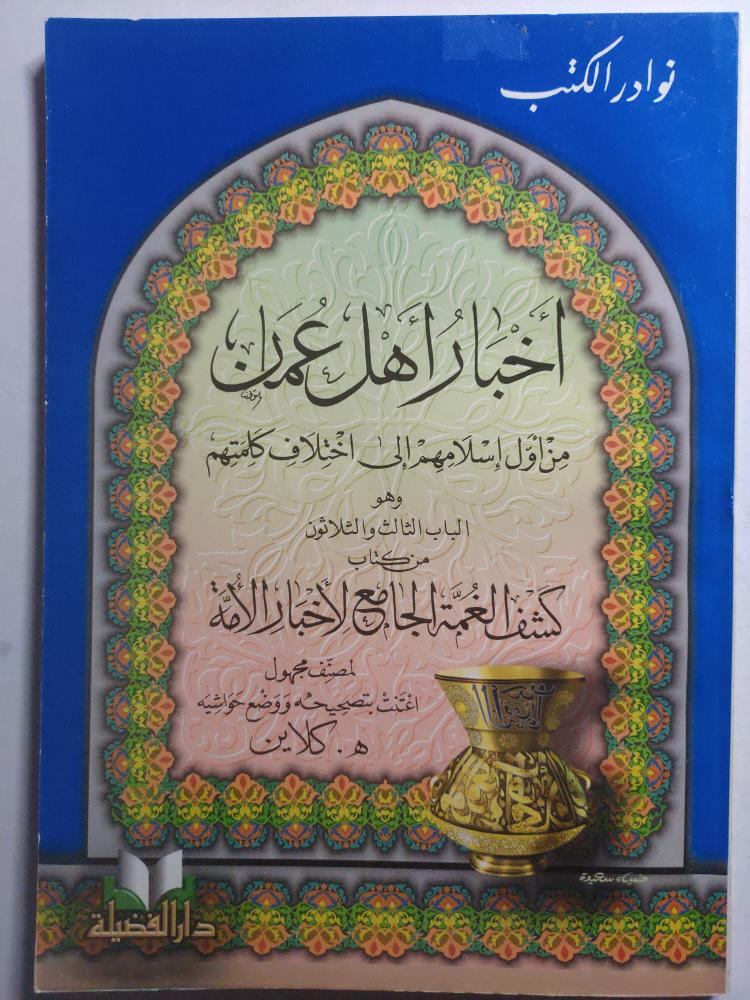 نوادر الكتب
أَخْبَارُ أَهْلِ عُمَان
مِنْ أوّلِ إِسْلَامِهِمْ إلى اخْتِلَافِ كَلِمَتِهِمْ
وهو
الباب الثالث والثلاثون
من كتاب
كَشْفُ الغُمَّة الجَامِع لِأَخْبَارِ الأُمَّة
لمصنّف مجهول
اعْتَنَتْ بتَصْحِيحه وَوَضْعِ حَوَاشِيه
ه. كلاين
ضياء سعيدة
دار الفضيلة